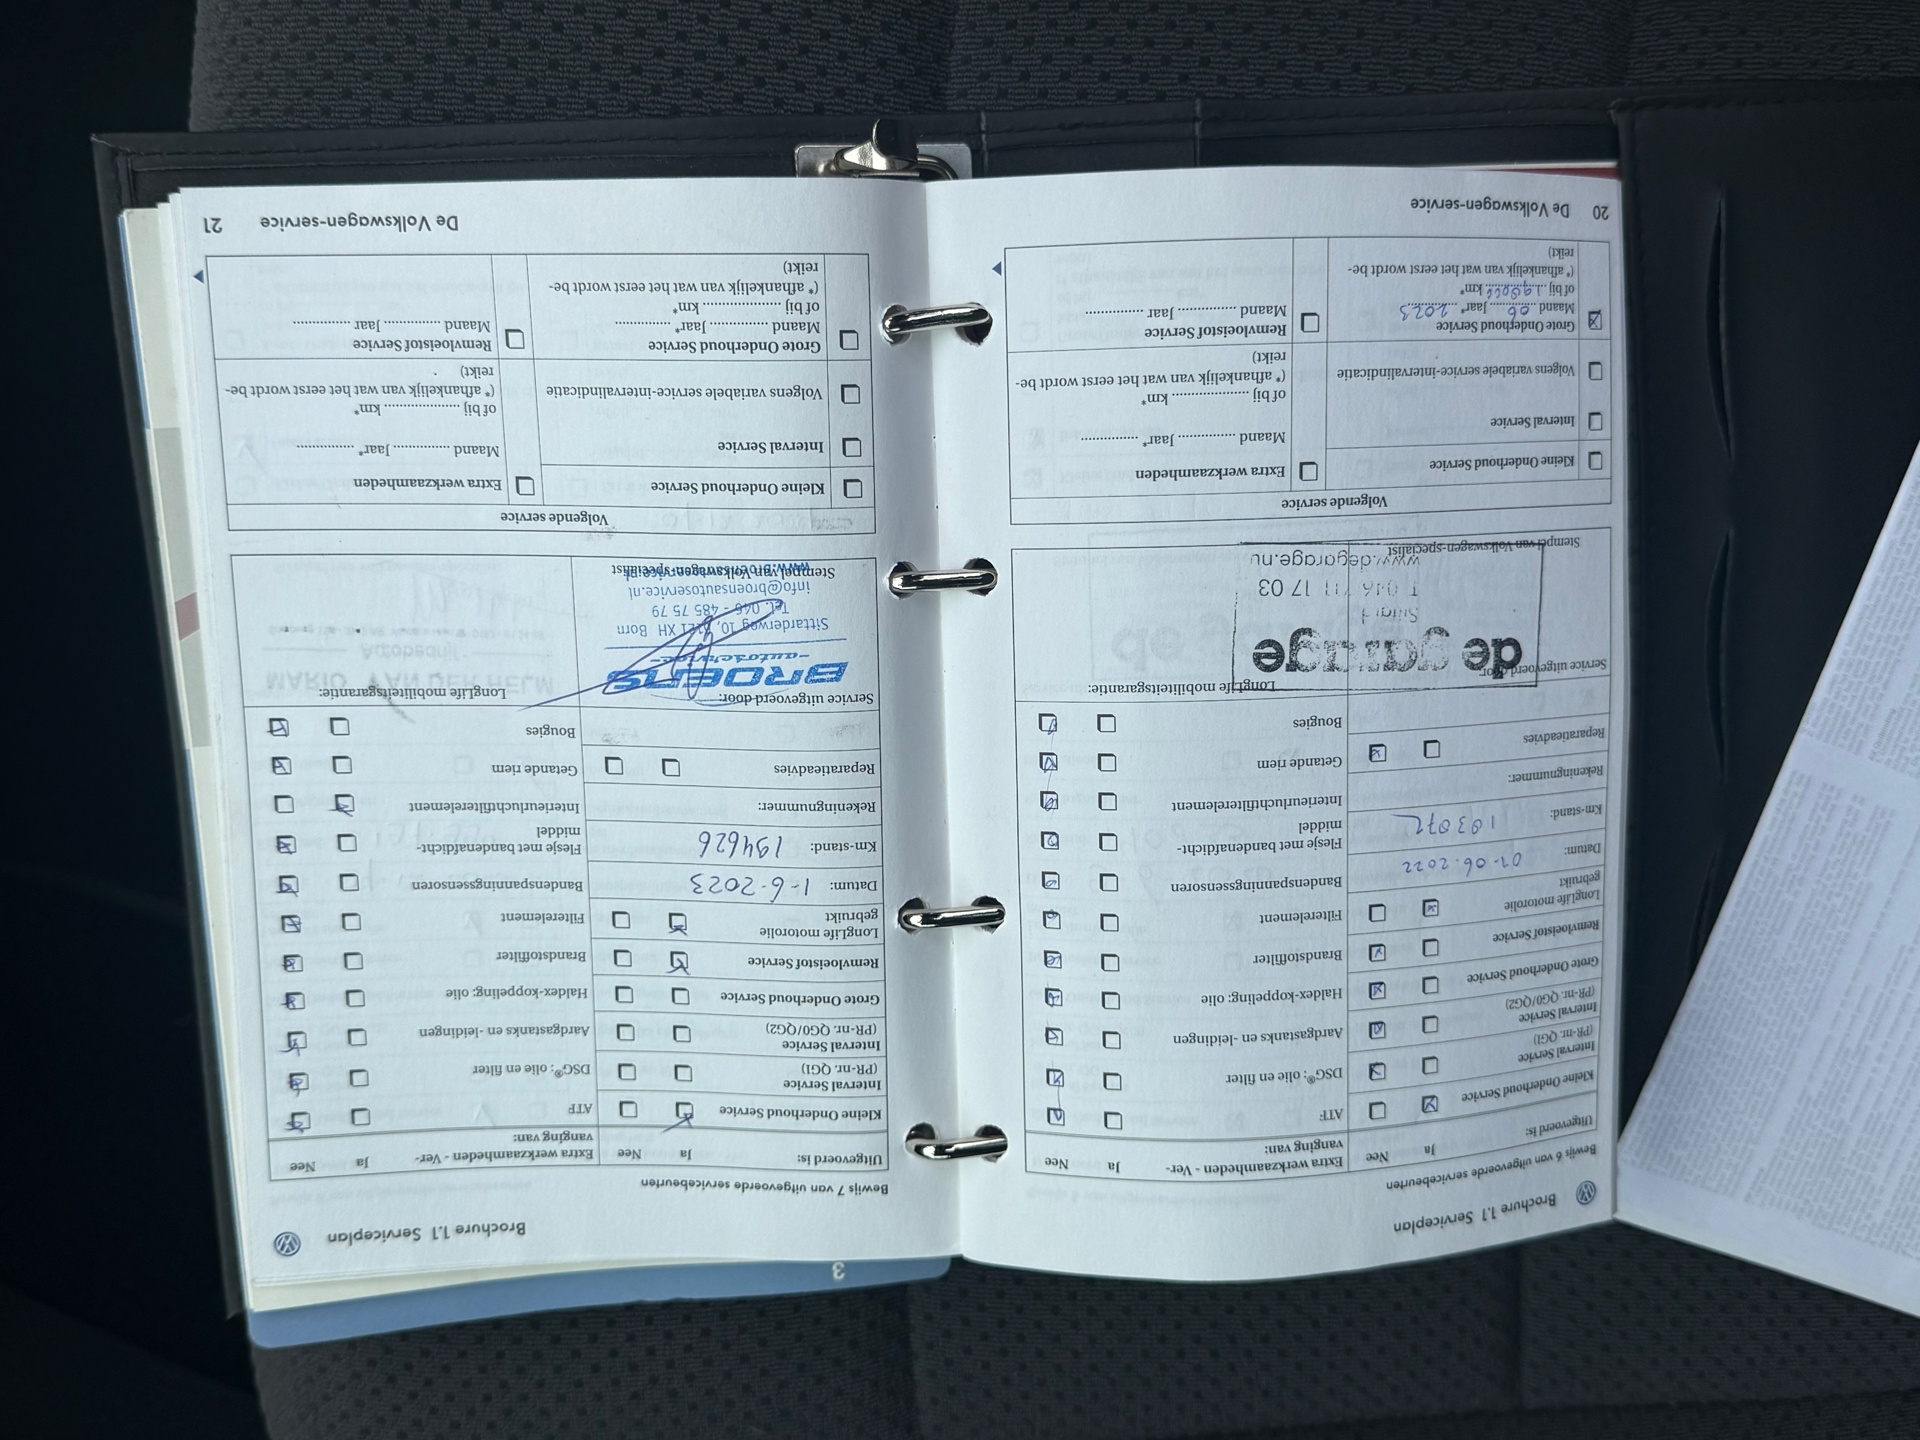 Brochure 1.1 Serviceplan
Bewijs 6 van uitgevoerde servicebeurten
Uitgevoerd is:
Ja
Nee
Kleine Onderhoud Service
Interval Service
(PR-nr. QG1)
Interval Service
(PR-nr. QG0/QG2)
Grote Onderhoud Service
Remvloeistof Service
LongLife motorolie
gebruikt
Datum:
01-06-2022
Km-stand:
183072
Rekeningnummer:
Reparatieadvies
Service uitgevoerd door:
de garage
Sittard
T 046 11 17 03
www.degarage.nu
Stempel van Volkswagen-specialist
Extra werkzaamheden - Ver-
vanging van:
Ja
Nee
ATF
DSG®: olie en filter
Aardgastanks en -leidingen
Haldex-koppeling: olie
Brandstoffilter
Filterelement
Bandenspanningssensoren
Flesje met bandenafdicht-
middel
Interieurluchtfilterelement
Getande riem
Bougies
LongLife mobiliteitsgarantie:
Volgende service
Kleine Onderhoud Service
Interval
Volgens variabele service-intervalindicatie
Grote Onderhoud Service
Maand 06 Jaar* 2023
of bij 198000 km*
(* afhankelijk van wat het eerst wordt be-
reikt)
Extra werkzaamheden
Maand .............. Jaar* ..............
of bij .................... km*
(* afhankelijk van wat het eerst wordt be-
reikt)
Remvloeistof Service
Maand .............. Jaar ..............
20 De Volkswagen-service
Brochure 1.1 Serviceplan
Bewijs 7 van uitgevoerde servicebeurten
Uitgevoerd is:
Ja
Nee
Kleine Onderhoud Service
Interval Service
(PR-nr. QG1)
Interval Service
(PR-nr. QG0/QG2)
Grote Onderhoud Service
Remvloeistof Service
LongLife motorolie
gebruikt
Datum:
1-6-2023
Km-stand:
194626
Rekeningnummer:
Reparatieadvies
Service uitgevoerd door:
BROENS
-autoservice-
Sittarderweg 10, 6121 XH Born
Tel. 046 - 485 75 79
info@broensautoservice.nl
www.broensautoservice.nl
Stempel van Volkswagen-specialist
Extra werkzaamheden - Ver-
vanging van:
Ja
Nee
ATF
DSG®: olie en filter
Aardgastanks en -leidingen
Haldex-koppeling: olie
Brandstoffilter
Filterelement
Bandenspanningssensoren
Flesje met bandenafdicht-
middel
Interieurluchtfilterelement
Getande riem
Bougies
LongLife mobiliteitsgarantie:
Volgende service
Kleine Onderhoud Service
Interval Service
Volgens variabele service-intervalindicatie
Grote Onderhoud Service
Maand .............. Jaar* ..............
of bij .................... km*
(* afhankelijk van wat het eerst wordt be-
reikt)
Extra werkzaamheden
Maand .............. Jaar* ..............
of bij .................... km*
(* afhankelijk van wat het eerst wordt be-
reikt)
Remvloeistof Service
Maand .............. Jaar ..............
De Volkswagen-service 21
3